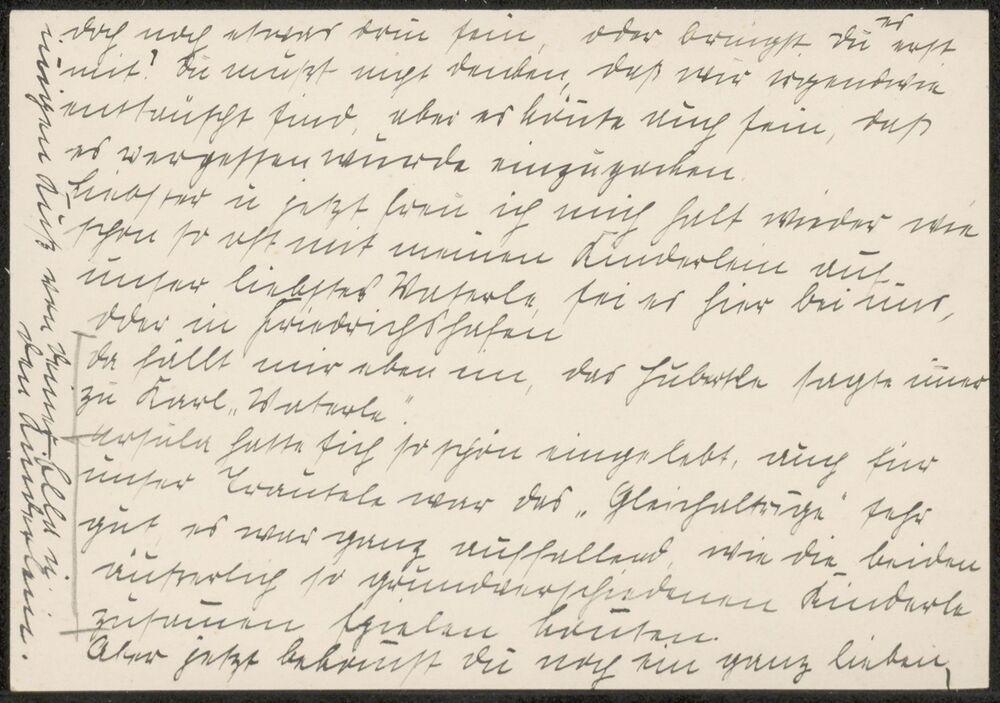 doch noch etwas drin sein, oder bringst du es erst
mit? Du mußt nicht denken, daß wir irgendwie
enttäuscht sind, aber es könnte auch sein, daß
es vergessen wurde einzupacken.
Liebster u jetzt freu ich mich halt wieder wie
schon so oft mit meinen Kinderlein auf
unser liebstes Vaterle, sei es hier bei uns,
oder in Friedrichshafen
Da fällt mir eben ein, das Hubertle sagte im̄er
zu Karl „Vaterle"
Ursula hatte sich so schön eingelebt, auch für
unser Trautele war das „Gleichaltrige" sehr
gut, es war ganz auffallend, wie die beiden
äußerlich so grundverschiedenen Kinderle
zusam̄en spielen kon̄ten.
Aber jetzt bekom̄st du noch ein ganz lieben,
innigen Kuß von deiner Ella u.
den Kinderlein.